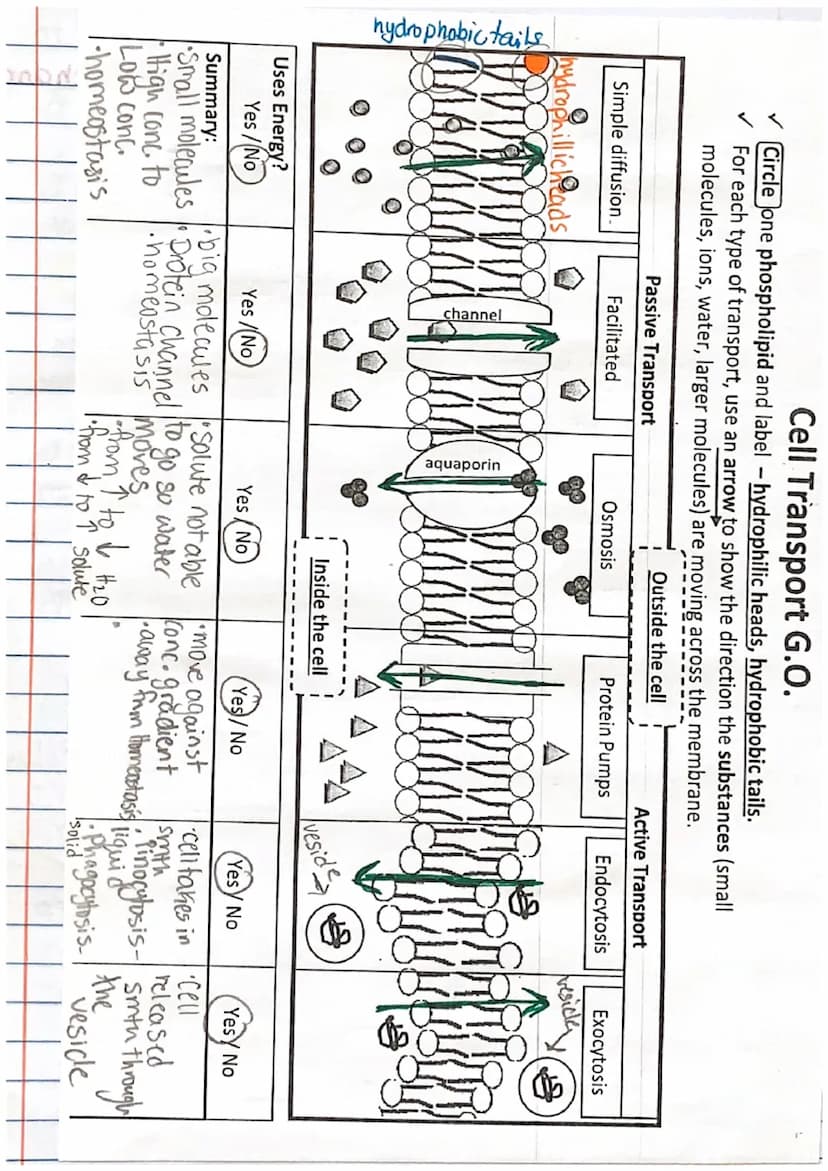 Cell Transport G.O.
✓ Circle one phospholipid and label – hydrophilic heads, hydrophobic tails.
✓ For each type of transport, use an arrow to show the direction the substances (small
molecules, ions, water, larger molecules) are moving across the membrane.
Passive Transport
Outside the cell
Active Transport
Simple diffusion.
Facilitated
Osmosis
Protein Pumps
Endocytosis
Exocytosis
hydrophillic heads
hydrophobic tails
channel
aquaporin
vesicle
vesicle
Inside the cell
Uses Energy?
Yes / No
Yes / No
Yes / No
Yes / No
Yes / No
Yes / No
Summary:
• Small molecules
• High conc. to
Low conc.
• homeostasis
• big molecules
• protein channel
• homeostasis
• Solute not able
to go so water
moves
• from ↑ to ↓ H2O
• from ↓ to ↑ solute
• move against
conc. gradient
• away from homeostasis
• cell takes in
smth
• pinocytosis-
liquid
• phagocytosis-
solid
• cell
released
smth through
the
vesicle